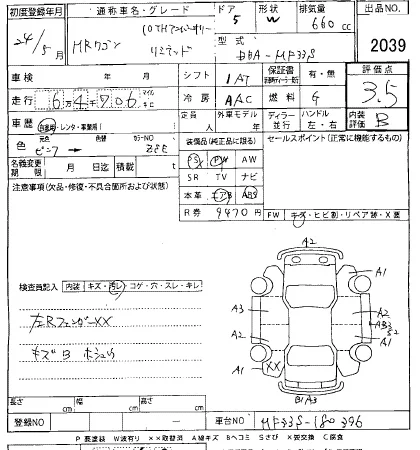 初度登録年月 通称車名・グレード ドア 形状 排気量 出品NO.
24/5月 MRワゴン 10THアニバーサリー リミテッド 5 W 660cc 2039
型式 DBA-MF33S
車検 年 月 シフト IAT 保証書 有・無 評価点
走行 6万4千706 マイル キロ 冷房 AAC 燃料 G 3.5
車歴 自家用・レンタ・事業用 定員 人 外車モデル 年 ディーラー 並行 ハンドル 左・右 内装評価 B
色 元色 ピンク → 色替 カラーNO
装備品(純正品に限る) セールスポイント(正常に機能するもの)
名義変更期限 月 日 積載 t PS PW AW
注意事項(欠品・修復・不具合箇所および状態) SR TV ナビ
本革 エアB ABS
R券 9470円 FW キズ・ヒビ割・リペア跡・X要
検査員記入 内装 キズ・汚レ・コゲ・穴・スレ・キレ
A2
A1 A1
A3 A2
A2 A1
XX
B1A3
左Rフェンダー XX
キズB
長さ cm 幅 cm 高さ cm
登録NO 車台NO MF33S-180396
P 要塗装 W波有り XX取替済 A線キズ Bヘコミ Sさび X要交換 C腐食